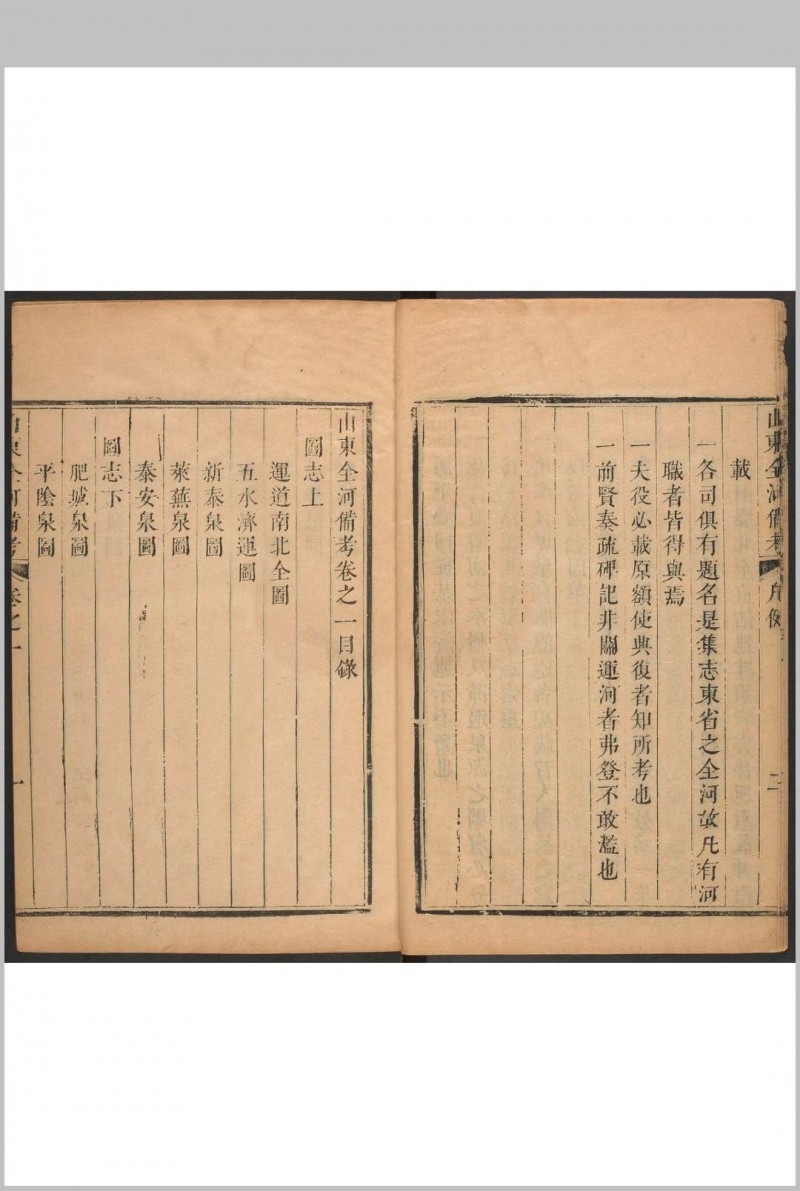 山東全河備考
凡例
二
載
一各司俱有題名是集志東省之全河故凡有河
職者皆得與焉
一夫役必載原額使興復者知所考也
一前賢奏疏碑記非關運河者弗登不敢濫也
山東全河備考卷之一目錄
圖志上
運道南北全圖
五水濟運圖
新泰泉圖
萊蕪泉圖
泰安泉圖
圖志下
肥城泉圖
平陰泉圖
山東全河備考
卷之一
一